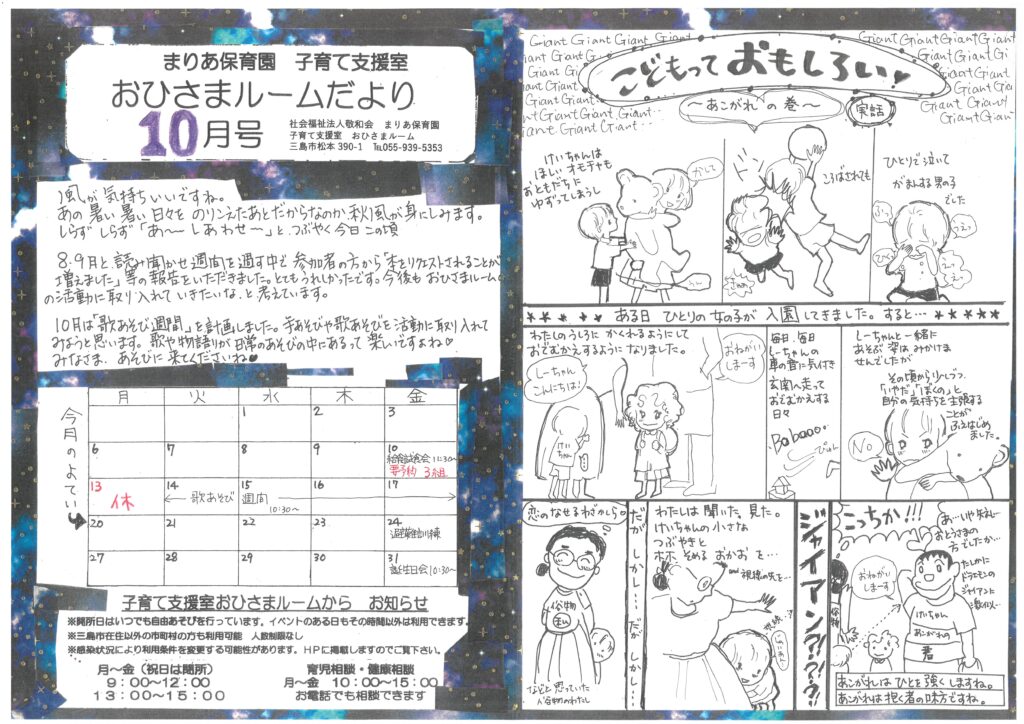 まりあ保育園 子育て支援室
おひさまルームだより
10月号
社会福祉法人敬和会 まりあ保育園
子育て支援室 おひさまルーム
三島市松本390-1 ℡055-939-5353
風が気持ちいいですね。
あの暑い暑い日々をのりこえたあとだからなのか、秋風が身にしみます。
しらずしらず「あ〜しあわせ〜」と、つぶやく今日この頃
8.9月と読み聞かせ週間を過す中で参加者の方から「本をリクエストされることが
増えました」等の報告をいただきました。とてもうれしかったです。今後もおひさまルーム
の活動に取り入れていきたいな、と考えています。
10月は「歌あそび週間」を計画しました。手あそびや歌あそびを活動に取り入れて
みようと思います。歌や物語りが日常のあそびの中にあるって楽しいですよね♥
みなさま、あそびに来てくださいね♥
今月のよてい
月 火 水 木 金
1 2 3
6 7 8 9 10
給食試食会 11:30〜
要予約 3組
13 14 15 16 17
休
歌あそび 週間
10:30〜
20 21 22 23 24
避難訓練
27 28 29 30 31
誕生日会10:30〜
子育て支援室おひさまルームから お知らせ
※開所日はいつでも自由あそびを行っています。イベントのある日もその時間以外は利用できます。
※三島市在住以外の市町村の方も利用可能 人数制限なし
※感染状況により利用条件を変更する可能性があります。HPに掲載しますのでご覧下さい。
月〜金(祝日は閉所)
9:00〜12:00
13:00〜15:00
育児相談・健康相談
月〜金 10:00〜15:00
お電話でも相談できます
Giant Giant Giant Giant
Giant Giant Giant Giant
こどもって おもしろい!
〜あこがれの巻〜
実話
けいちゃんは
ほしいオモチャも
おともだちに
ゆずってしまうし
かして
ころばされても
ひとりで泣いて
がまんする男の子
でした
ある日 ひとりの女の子が 入園してきました。すると…
わたしのうしろに かくれるようにして
おでむかえするように なりました。
しーちゃん
こんにちは!
けいちゃん
おねがい
しまーす
毎日、毎日
しーちゃんの
車の音に気付き
玄関へ走って
おでむかえする
日々
Babooo…
しーちゃんと一緒に
あそぶ姿はみかけま
せんでしたが
その頃から少しづつ
「いやだ」「ぼくの」と
自分の気持ちを主張する
ことが
ふえはじめ
ました。
No
恋のなせるわざかしら♡
俗物
などと思っていた
俗物のわたし
だが しかし しかし…だ
わたしは聞いた、見た。
けいちゃんの小さな
つぶやきと
ホホ そめる おかおを…
and 視線の先を…
ジャイアン???
こっちか!!!
あ…いや失礼…
おとうさまの
方でしたか…
たしかに
ドラえもんの
ジャイアンに
おねがい
しまーす
けいちゃん
あこがれの
君
あこがれは ひとを 強く しますね。
あこがれは 抱く者の 味方ですね。